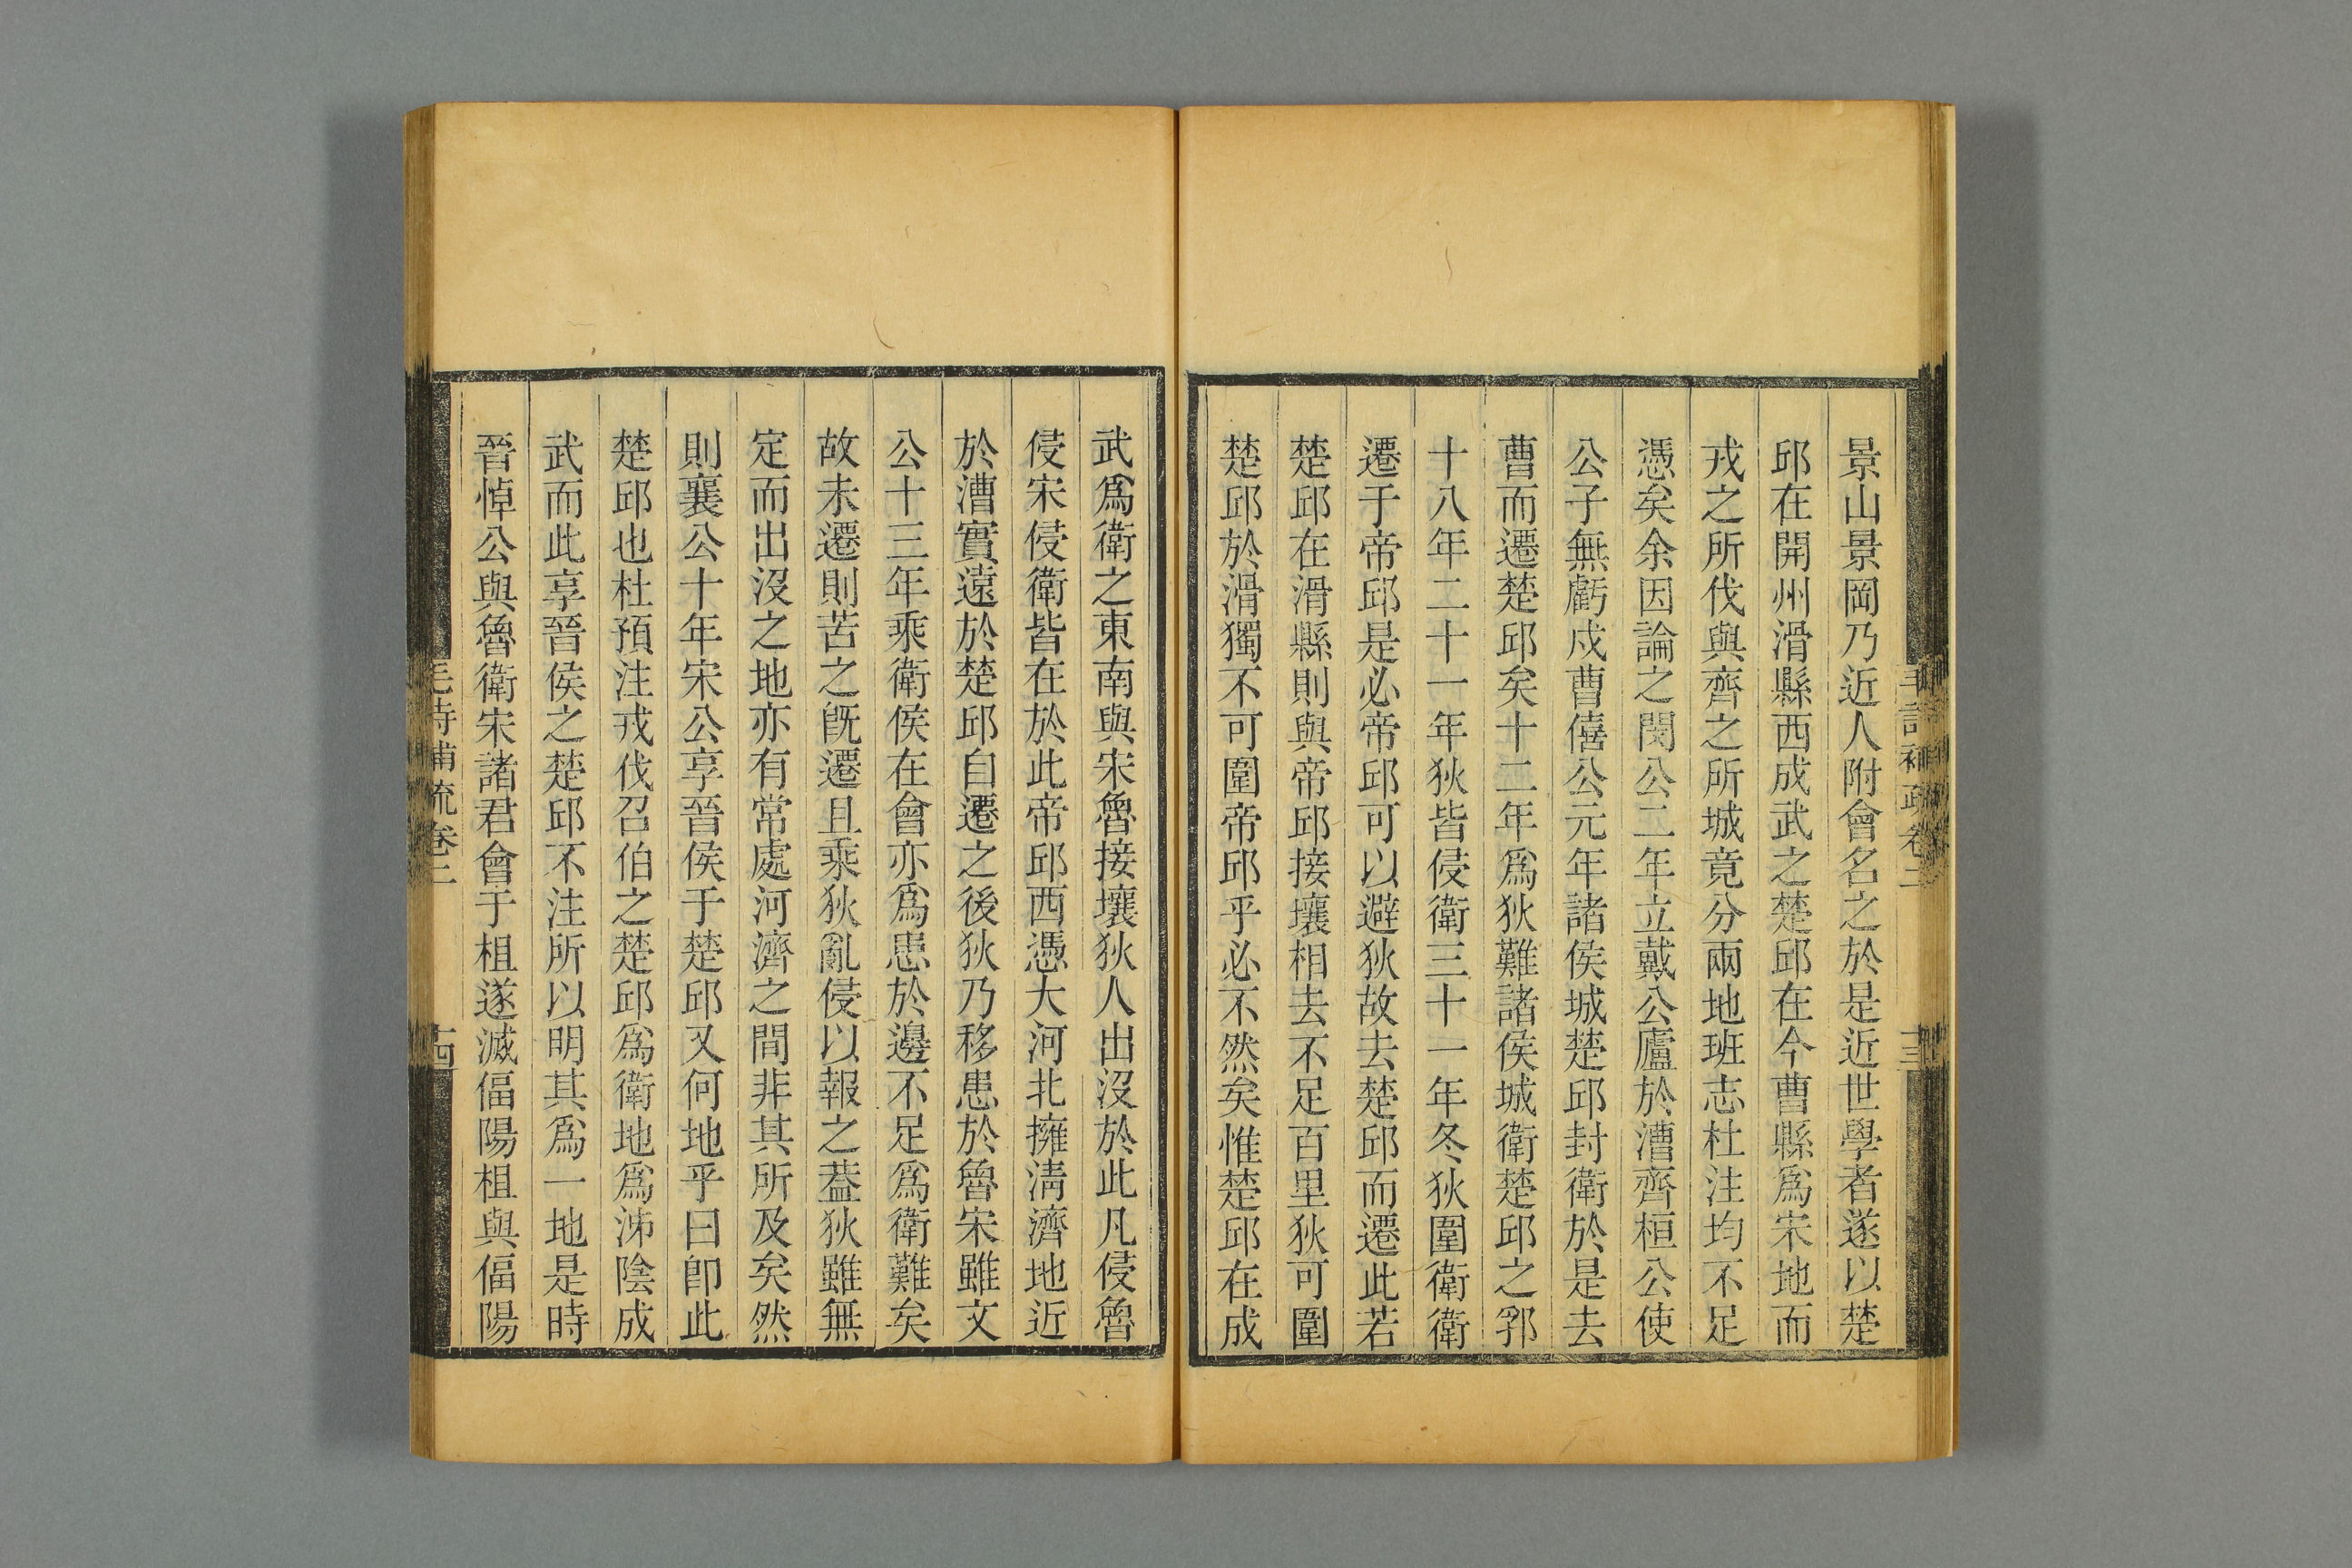 景山景岡乃近人附會名之於是近世學者遂以楚
邱在開州滑縣西成武之楚邱在今曹縣爲宋地而
戎之所伐與齊之所城竟分兩地班志杜注均不足
憑矣余因論之閔公二年立戴公廬於漕齊桓公使
公子無虧戍曹僖公元年諸侯城楚邱封衛於是去
曹而遷楚邱矣十二年爲狄難諸侯城衛楚邱之郛
十八年二十一年狄皆侵衛三十一年冬狄圍衛衛
遷于帝邱是必帝邱可以避狄故去楚邱而遷此若
楚邱在滑縣則與帝邱接壤相去不足百里狄可圍
楚邱於滑獨不可圍帝邱乎必不然矣惟楚邱在成
武爲衛之東南與宋魯接壤狄人出沒於此凡侵魯
侵宋侵衛皆在於此帝邱西憑大河北擁淸濟地近
於漕實遠於楚邱自遷之後狄乃移患於魯宋雖文
公十三年乘衛侯在會亦爲患於邊不足爲衛難矣
故未遷則苦之旣遷且乘狄亂侵以報之葢狄雖無
定而出沒之地亦有常處河濟之間非其所及矣然
則襄公十年宋公享晉侯于楚邱又何地乎曰卽此
楚邱也杜預注戎伐召伯之楚邱爲衛地爲泲陰成
武而此享晉侯之楚邱不注所以明其爲一地是時
晉悼公與魯衛宋諸君會于柤遂滅偪陽柤與偪陽
毛詩補疏卷二
十四